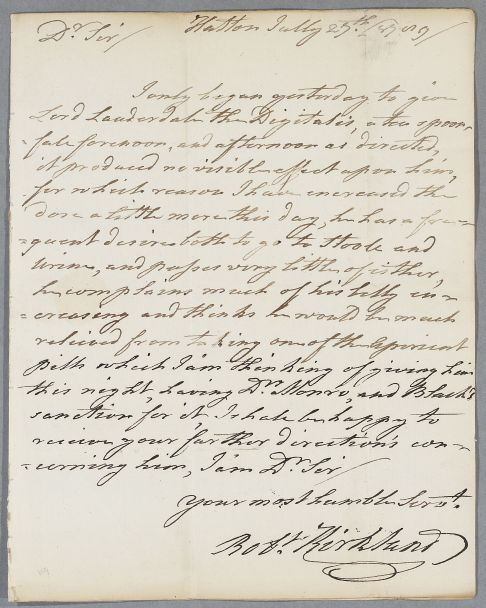 Dr Sir/ Hatton Jully 25th 1789/
I only began yesterday to give
Lord Lauderdale the Digitalis, a tea spoon=
=full forenoon, and afternoon as directed,
it produced no visible effect upon him,
for which reason I have increased the
dose a little more this day, he has a fre=
=quent desire both to go to stoole and
urine, and passes very little of either,
he complains much of his belly in=
=creasing and thinks he would be much
relieved from taking one of the Aperient
pills which I am thinking of giving him
this night, having Drs Monro, and Black's
sanction for it, I shall be happy to
receive your farther directions con=
=cerning him, I am Dr Sir/
Your most humble Servt.
Robt. Kirkland